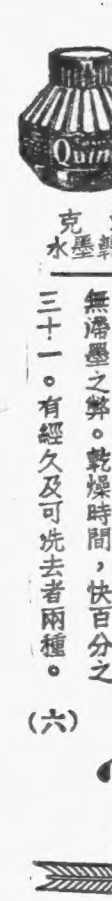 Quin
克
水墨
無滯墨之弊。乾燥時間，快百分之
三十一。有經久及可洗去者兩種。
(六)